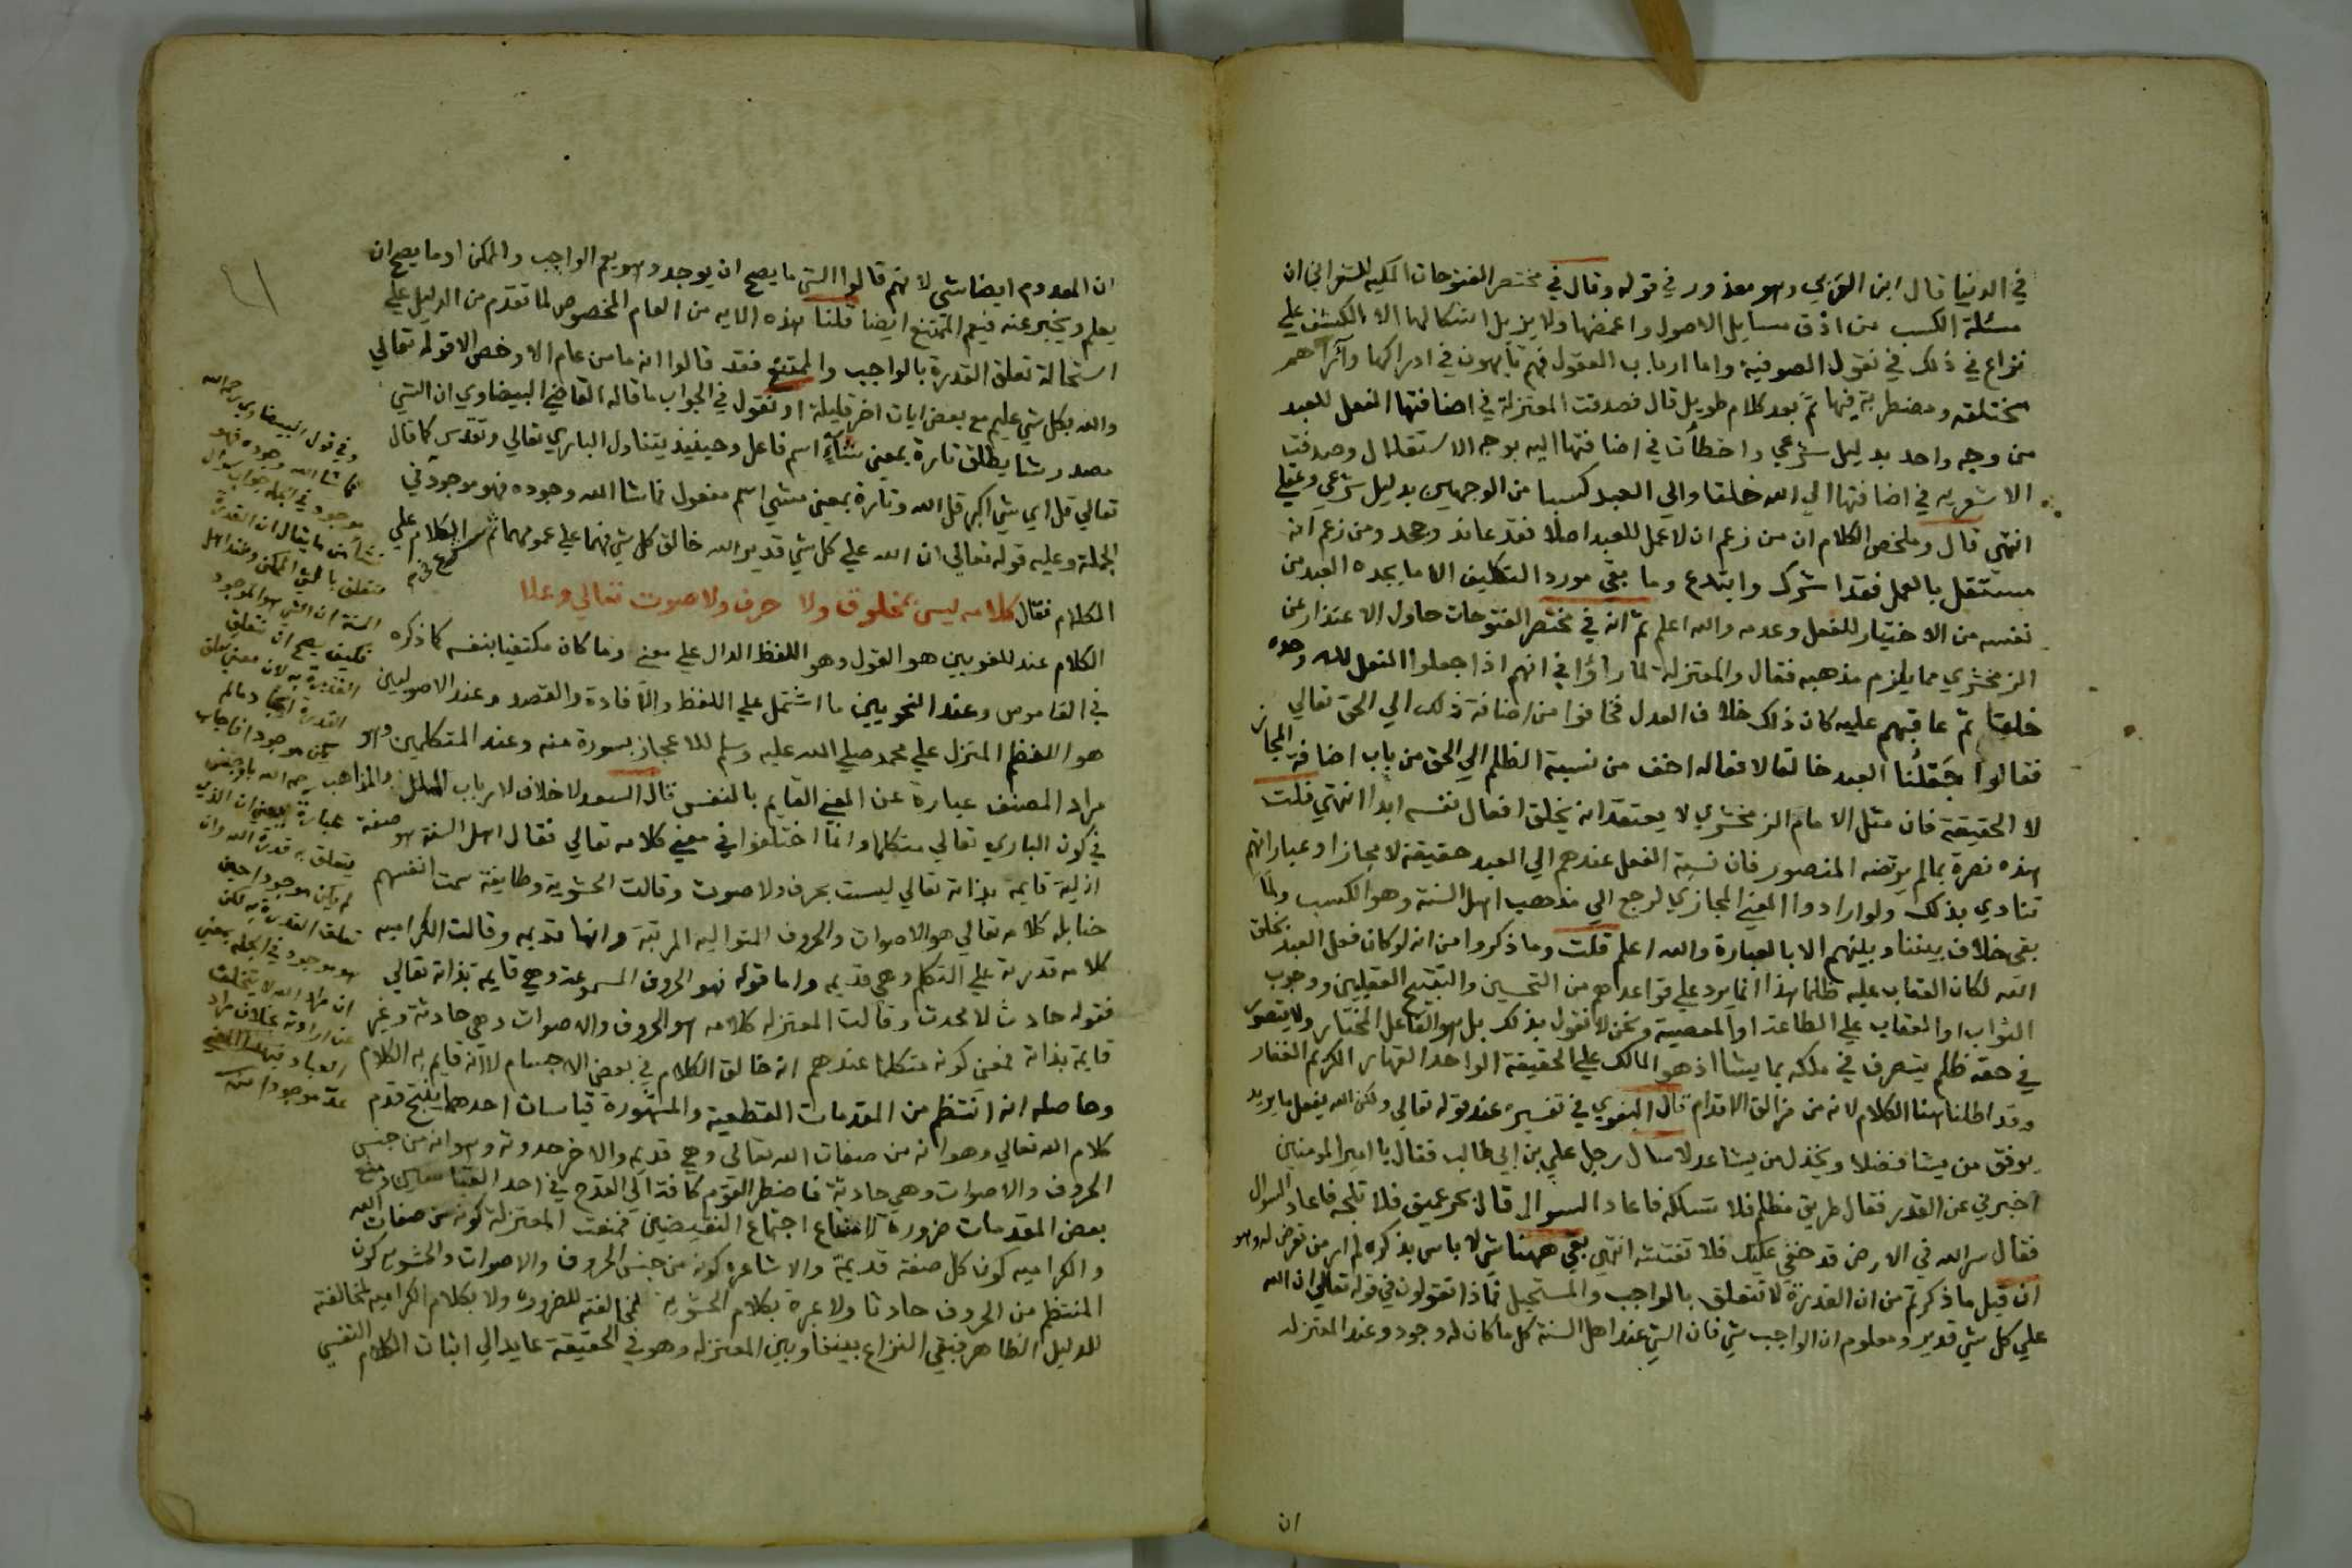 في الدنيا قال ابن العربي وهو معذور في قوله وقال في مختصر الفتوحات المكيه للشعراني ان
مسئلة الكسب من ادق مسايل الاصول واغمضها ولا يزيل اشكالها الا الكشف علي
نزاع في ذلك في نقول الصوفية واما ارباب العقول فهم تايهون في ادراكها وآراهم
مختلفة ومضطربة فيها ثم بعد كلام طويل قال فصدقت المعتزلة في اضافتها الفعل للعبد
من وجه واحد بدليل شرعي واخطأت في اضافتها اليه بوجه الاستقلال وصدقت
الاشعريه في اضافتها الي الله خلقا والي العبد كسبا من الوجهين بدليل شرعي وعقلي
انتهى قال وملخص الكلام ان من زعم ان لا عمل للعبد اصلا فقد عاند وجحد ومن زعم انه
مستقل بالعمل فقد اشرك وابتدع وما بقى مورد التكليف الا ما يجده العبد من
نفسه من الاختيار للفعل وعدمه والله اعلم ثم انه في مختصر الفتوحات حاول الاعتذار عن
الزمخشري مما يلزم مذهبه فقال والمعتزلة لما راؤا في انهم اذا جعلوا الفعل لله وحده
خلقا ثم عاقبهم عليه كان ذلك خلاف العدل فخافوا من اضافة ذلك الي الحق تعالي
فقالوا جَعْلُنا العبد خالقا لافعاله اخف من نسبة الظلم الي الحق من باب اضافة المجاز
لا الحقيقة فان مثل الامام الزمخشري لا يعتقد انه يخلق افعال نفسه ابدا انتهي قلت
هذه نصرة بما لم يرتضه المنصور فان نسبة الفعل عندهم الي العبد حقيقة لا مجازا وعباراتهم
تنادي بذلك ولو ارادوا المعني المجازي لرجع الي مذهب اهل السنة وهو الكسب ولما
بقي خلاف بيننا وبينهم الا بالعبارة والله اعلم قلت وما ذكروا من انه لو كان فعل العبد بخلق
الله لكان العقاب عليه ظلما هذا انما يرد علي قواعدهم من التحسين والتقبيح العقليين ووجوب
الثواب او العقاب علي الطاعة او المعصية ونحن لا نقول بذلك بل هو الفاعل المختار ولا يتصور
في حقه ظلم يتصرف في ملكه بما يشا اذ هو المالك علي الحقيقة الواحد القهار الكريم الغفار
وقد اطلنا هنا الكلام لانه من مزالق الاقدام قال البغوي في تفسيره عند قوله تعالي ولكن الله يفعل ما يريد
يوفق من يشا فضلا ويخذل من يشا عدلا سال رجل علي بن ابي طالب فقال يا امير المومنين
اخبرني عن القدر فقال طريق مظلم فلا تسلكه فاعاد السوال قال بحر عميق فلا تلجه فاعاد السوال
فقال سر الله في الارض قد خفي عليك فلا تفتشه انتهي بقي ههنا شي لا باس بذكره لم ار من تعرض له وهو
ان قيل ما ذكرتم من ان القدرة لا تتعلق بالواجب والمستحيل فما ذا تقولون في قوله تعالي ان الله
علي كل شي قدير ومعلوم ان الواجب شي فان الشي عند اهل السنة كل ما كان له وجود وعند المعتزله
ان
٤١
ان المعدوم ايضا شي لانهم قالوا الشي ما يصح ان يوجد وهو يعم الواجب والممكن او ما يصح ان
يعلم ويخبر عنه فيعم الممتنع ايضا قلنا هذه الايه من العام المخصوص لما تقدم من الدليل علي
استحالة تعلق القدرة بالواجب والممتنع فقد قالوا انه ما من عام الا وخص الا قوله تعالي
والله بكل شي عليم مع بعض ايات اخر قليلة او نقول في الجواب ما قاله القاضي البيضاوي ان الشي
مصدر شا يطلق تارة بمعني شآءٍ اسم فاعل وحينيذ يتناول الباري تعالي وتقدس كما قال
تعالي قل اي شي اكبر قل الله وتارة بمعني مشي اسم مفعول فما شا الله وجوده فهو موجود في
الجملة وعليه قوله تعالي ان الله علي كل شي قدير الله خالق كل شي فهما علي عمومهما ثم شرع في الكلام علي
الكلام فقال كلامه ليس بمخلوق ولا حرف ولا صوت تعالي وعلا
الكلام عند اللغويين هو القول وهو اللفظ الدال علي معني وما كان مكتفيا بنفسه كما ذكره
في القاموس وعند النحويين ما اشتمل علي اللفظ والافادة والقصد وعند الاصوليين
هو اللفظ المنزل علي محمد صلي الله عليه وسلم للاعجاز بسورة منه وعند المتكلمين وهو
مراد المصنف عبارة عن المعني القايم بالنفس قال السعد لا خلاف لارباب الملل والمذاهب
في كون الباري تعالي متكلما وانما اختلفوا في معني كلامه تعالي فقال اهل السنة هو صفة
ازلية قايمة بذاته تعالي ليست بحرف ولا صوت وقالت الحشوية وطايفة سمت انفسهم
حنابله كلامه تعالي هو الاصوات والحروف المتواليه المرتبة وانها قديمه وقالت الكراميه
كلامه قدرته علي التكلم وهي قديمه واما قوله فهو الحروف المسموعة وهي قايمة بذاته تعالي
فقوله حادث لا محدث وقالت المعتزله كلامه هو الحروف والاصوات وهي حادثة وغير
قايمة بذاته فمعني كونه متكلما عندهم انه خالق الكلام في بعض الاجسام لا انه قايم به الكلام
وحاصله انه انتظم من المقدمات القطعية والمشهورة قياسات احدهما ينتج قدم
كلام الله تعالي وهو انه من صفات الله تعالي وهي قديمه والاخر حدوثه وهو انه من جنس
الحروف والاصوات وهي حادثة فاضطر القوم كافة الي القدح في احد القياسين ومنع
بعض المقدمات ضرورة امتناع اجتماع النقيضين فمنعت المعتزلة كونه من صفات الله
والكراميه كون كل صفة قديمة والاشاعره كونه من جنس الحروف والاصوات والحشويه كون
المنتظم من الحروف حادثا ولا عبرة بكلام الحشويه لمخالفته للضروره ولا بكلام الكراميه لمخالفته
للدليل الظاهر فبقي النزاع بيننا وبين المعتزله وهو في الحقيقة عايد الي اثبات الكلام النفسي
وفي قول البيضاوي رحمه الله
فما شا الله وجوده فهو
موجود في الجملة جواب سوال
نشأ من ما يقال ان القدرة
تتعلق بالشي الممكن وعند اهل
السنة ان الشي هو الموجود
فكيف يصح ان تتعلق
القدرة به لان معني تعلق
القدرة ايجاد ما لم
يكن موجودا فاجاب
رحمه الله باوجز
عبارة يعني ان الذي
يتعلق به قدرة الله وان
لم يكن موجودا حين
تعلق القدرة به لكن
هو موجود في الجملة بمعني
ان مراد الله لا يتخلف
عن ارادته بخلاف مراد
العباد فبهذا المعني
عدّ موجودا